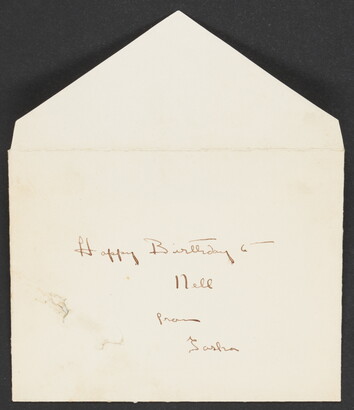 Happy Birthday to
Nell
from